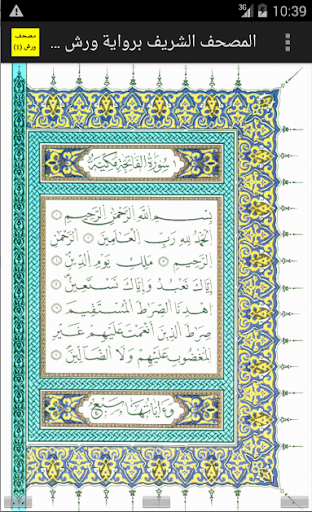 3G 10:39
مصحف
ورش (1)
المصحف الشريف برواية ورش ...
سورة الفاتحة مكية
بسم الله الرحمن الرحيم
الحمد لله رب العالمين الرحمن
الرحيم ملك يوم الدين
إياك نعبد وإياك نستعين
اهدنا الصرط المستقيم
صرط الذين أنعمت عليهم غير
المغضوب عليهم ولا الضالين
وءاياتها سبع